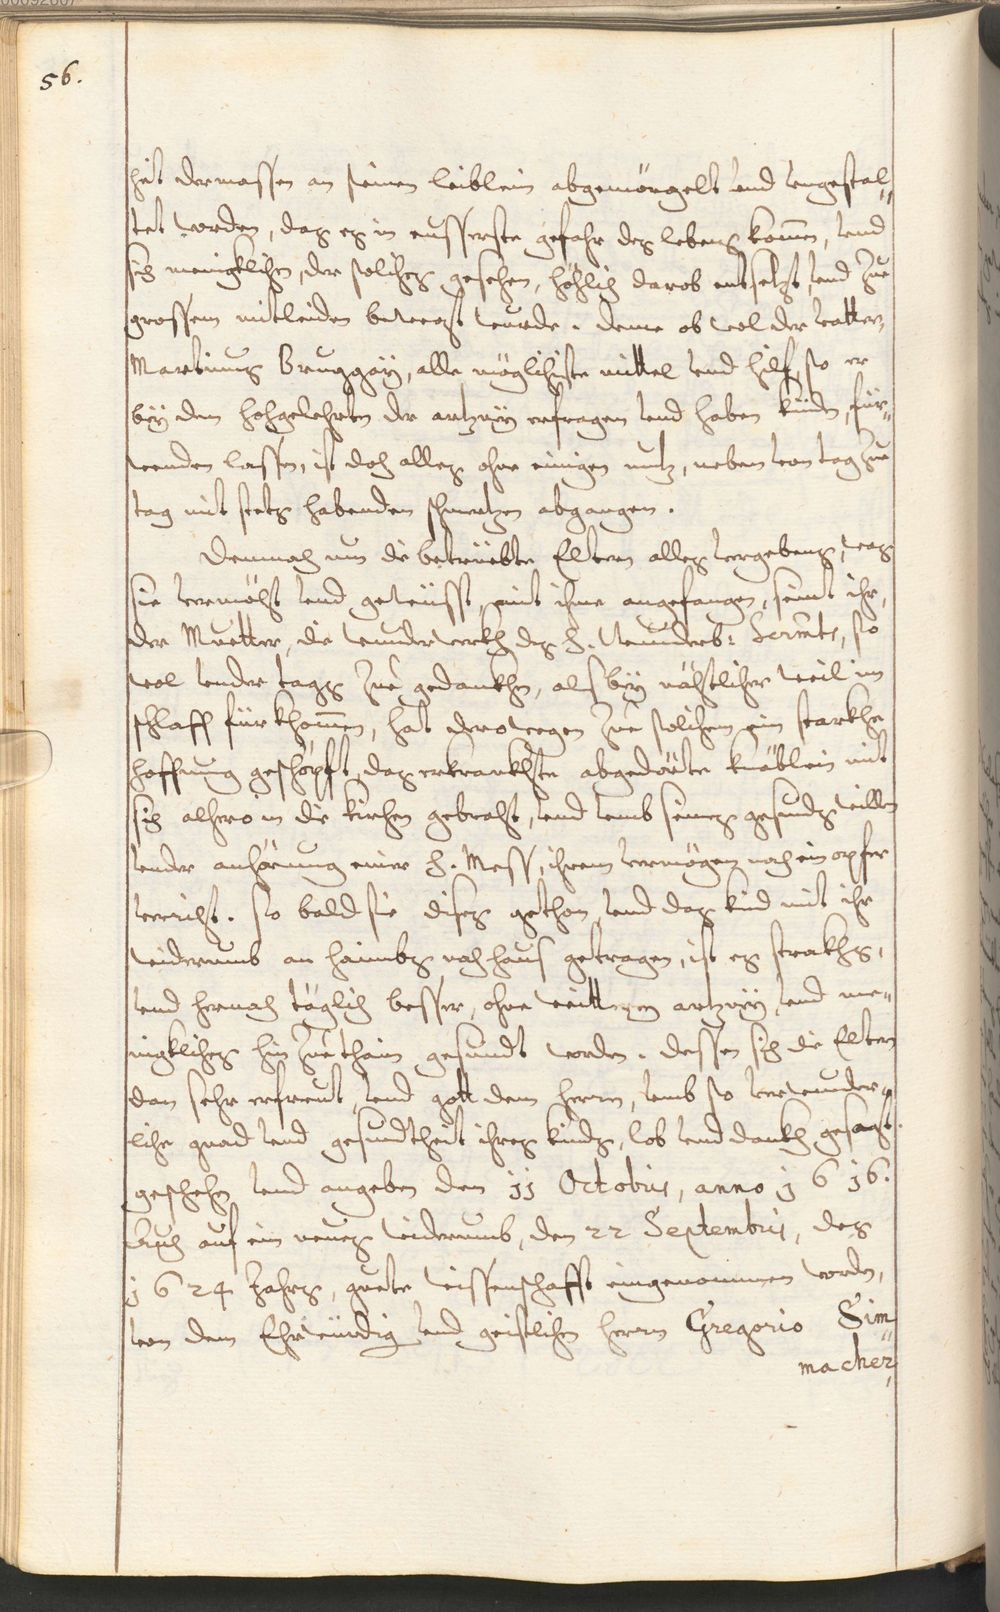 56.
heit dermassen an seinem leiblein abgemörgelt und ungestal„
tet worden, das es in eusserste gefahr des lebens komen, und
sich menigklichen, der solches gesehen, höchlich darob entsetzt, und zue
grossem mitleiden bewegt wurde. deme ob wol der vatter,
Martinus Bruggay, alle möglichiste mittel und hilf, so er
bey dem hochgelehrten der artzney erfragen und haben künden, für„
wenden lassen, ist doch alles ohne einigen nutz, neben von tag zue
tag mit stets habenden schmertzen abgangen.
Demnach nun die betrüebte Eltern alles vergebens, was
sie vermöcht und gewüsst, mit ihme angefangen, seint ihr,
der Muetter, die wunderwerkh des H. wunderb: Sacrmts, so
wol under tags zue gedankhen, als bey nächtlicher weil im
schlaff fürkhommen, hat derowegen zue solichem ein starkhe
hoffnung geschöpft, das erkrankhte abgedörte knäblein mit
sich alhero in die kirchen gebracht, und umb seines gesundts willen
under anhörung einer H. Mess, ihrem vermögen nach ein opfer
verricht. so bald sie dises gethon, und das kind mit ihr
widerumb an haimbs nach haus getragen, ist es strakhs,
und hernach täglich besser, ohne weittern artzney, und me„
nigkliches hin zuethain gesundt worden. dessen sich die Eltern
dan sehr erfreut, und gott dem herrn, umb so verwunder„
liche gnad und gesundtheit ihres kinds, lob und dankh gesagt.
geschehen und angeben den 11 Octobris, anno 1616.
Auch auf ein neues widerumb, den 22 Septembris, des
1624 Jahrs, guete wissenschafft eingenommen worden,
von dem Ehrwürdig und geistlichen herrn Gregorio Sim„
macher,